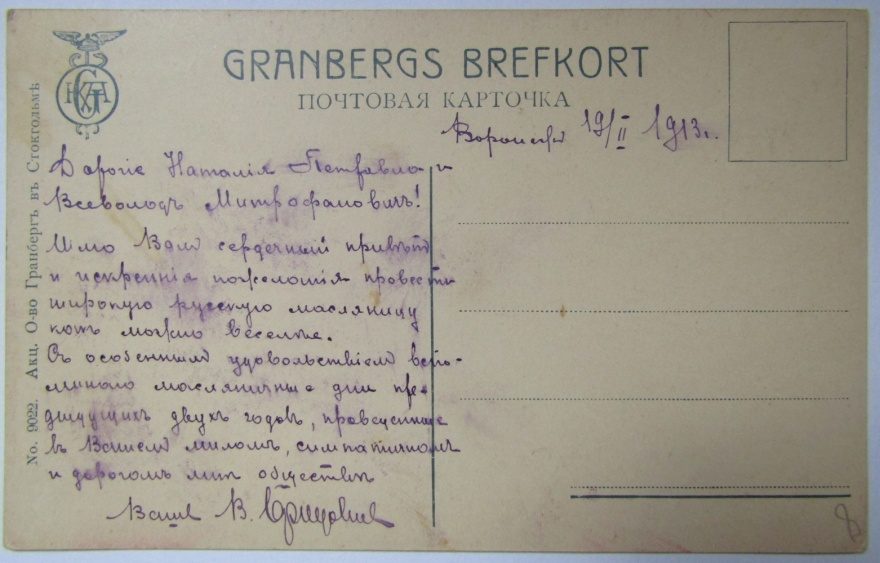 GRANBERGS BREFKORT
ПОЧТОВАЯ КАРТОЧКА
No. 9022. Акц. О-во Гранбергъ въ Стокгольмѣ
19/II 1913 г.
Дорогіе Наталія Петровна и
Всеволодъ Митрофановичъ!
Шлю Вамъ сердечный привѣтъ
и искреннія пожеланія провести
широкую русскую масляницу
какъ можно веселѣе.
Съ особеннымъ удовольствіемъ вспо-
минаю масляничные дни пре-
дыдущихъ двухъ годовъ, проведенные
въ Вашемъ миломъ, симпатичномъ
и дорогомъ мнѣ обществѣ
Вашъ В.
8